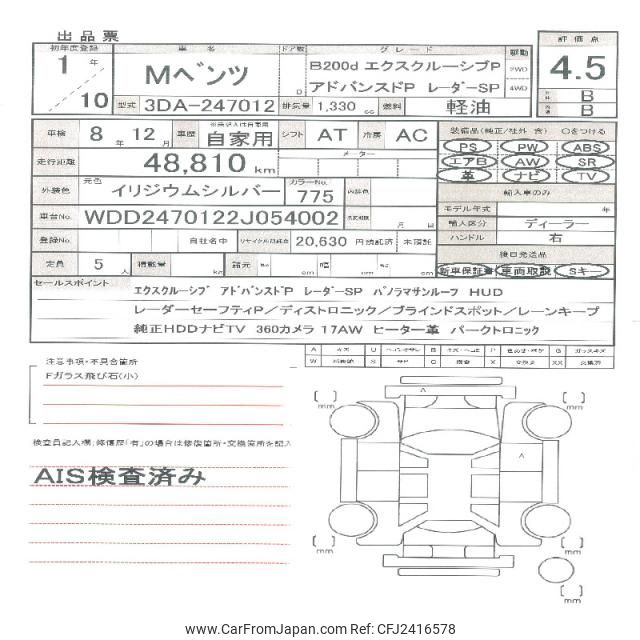 出品票
初年度登録 車名 ドア数 グレード 駆動 評価点
1年 10
Mベンツ D
B200d エクスクルーシブP 2WD
アドバンスドP レーダーSP 4WD
4.5
B
B
型式 3DA-247012 排気量 1,330 cc 燃料 軽油
車検 8年 12月 車歴 自家用 シフト AT 冷房 AC
装備品(純正/社外 含) ○をつける
PS PW ABS
エアB AW SR
革 ナビ TV
走行距離 48,810 km メーター
輸入車のみ
外装色 元色 イリジウムシルバー カラーNo. 775 内装色
モデル年式 年
車台No. WDD2470122J054002 月 日
輸入区分 ディーラー
ハンドル 右
登録No. 自社名中 リサイクル預託金 20,630 円預託済 未預託
後日発送品
定員 5人 積載量 kg 諸元 長 cm 幅 cm 高 cm
新車保証書 車両取説 Sキー
セールスポイント
エクスクルーシブ アドバンスドP レーダーSP パノラマサンルーフ HUD
レーダーセーフティP/ディストロニック/ブラインドスポット/レーンキープ
純正HDDナビTV 360カメラ 17AW ヒーター革 パークトロニック
注意事項・不具合箇所
Fガラス飛び石(小)
検査員記入欄(修復歴「有」の場合は修復箇所・交換箇所を記入
AIS検査済み
A
A
mm
mm
mm
mm
mm
www.CarFromJapan.com Ref: CFJ2416578